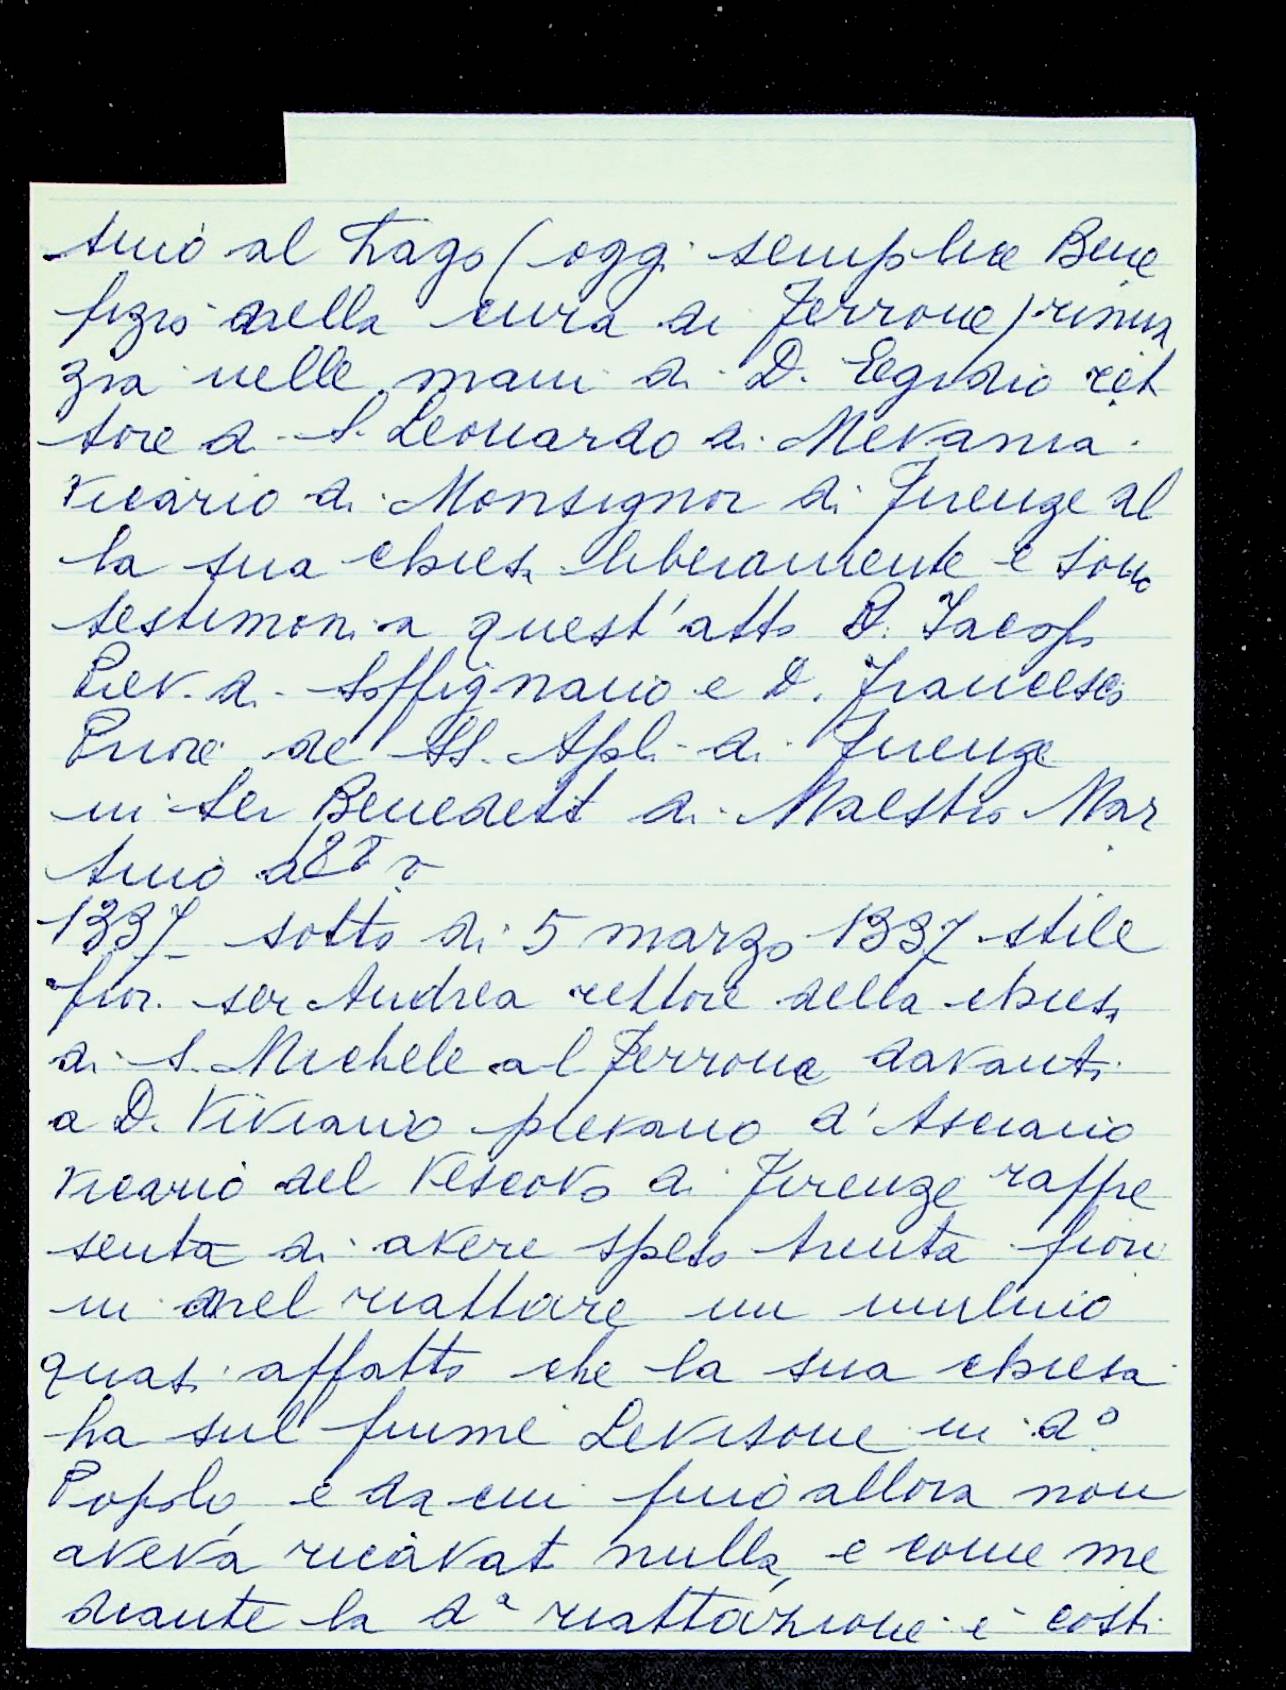 tino al Fago (oggi semplice Bene
fizio nella cura di Ferrone) rinun
zia nelle mani di D. Egidio ret
tore di S. Leonardo di Mevania
vicario di Monsignor di Firenze al
la sua chiesa liberamente e sono
testimoni a quest'atto D. Iacopo
Piev. di Soffignano e D. Francesco
Priore de SS. Apli di Firenze
in ser Benedett di Maestro Mar
tino
1337 sotto di 5 marzo 1337 stile
fior. ser Andrea rettore della chiesa
di S. Michele al Ferrone davanti
a D. Viviano plevano d'Asciano
vicario del Vescovo di Firenze rappre
senta di avere speso trenta fiori
ni nel riattare un mulino
quasi affatto che la sua chiesa
ha sul fiume Levisone in d°
Popolo, e da cui fino allora non
aveva ricavat nulla, e come me
diante la dª riattazione è costi